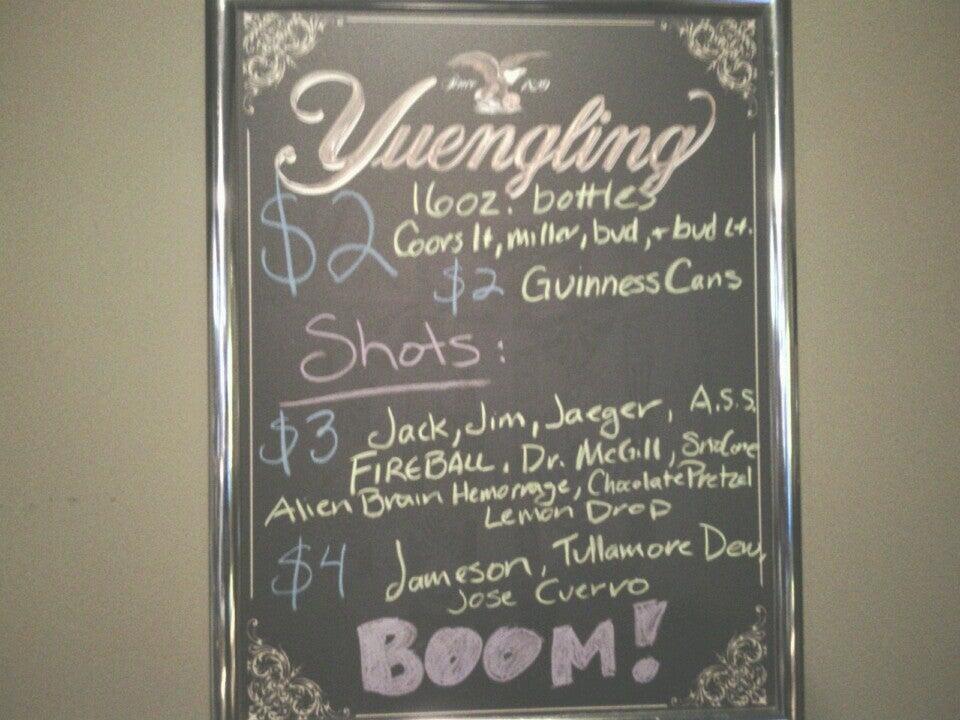 Since 1829
Yuengling
$2 16oz. bottles
Coors lt, miller, bud, + bud Lt.
$2 Guinness Cans
Shots:
$3 Jack, Jim, Jaeger, A.S.S.
FIREBALL, Dr. McGill, SnoCone
Alien Brain Hemorrage, Chocolate Pretzel
Lemon Drop
$4 Jameson, Tullamore Dew,
Jose Cuervo
BOOM!